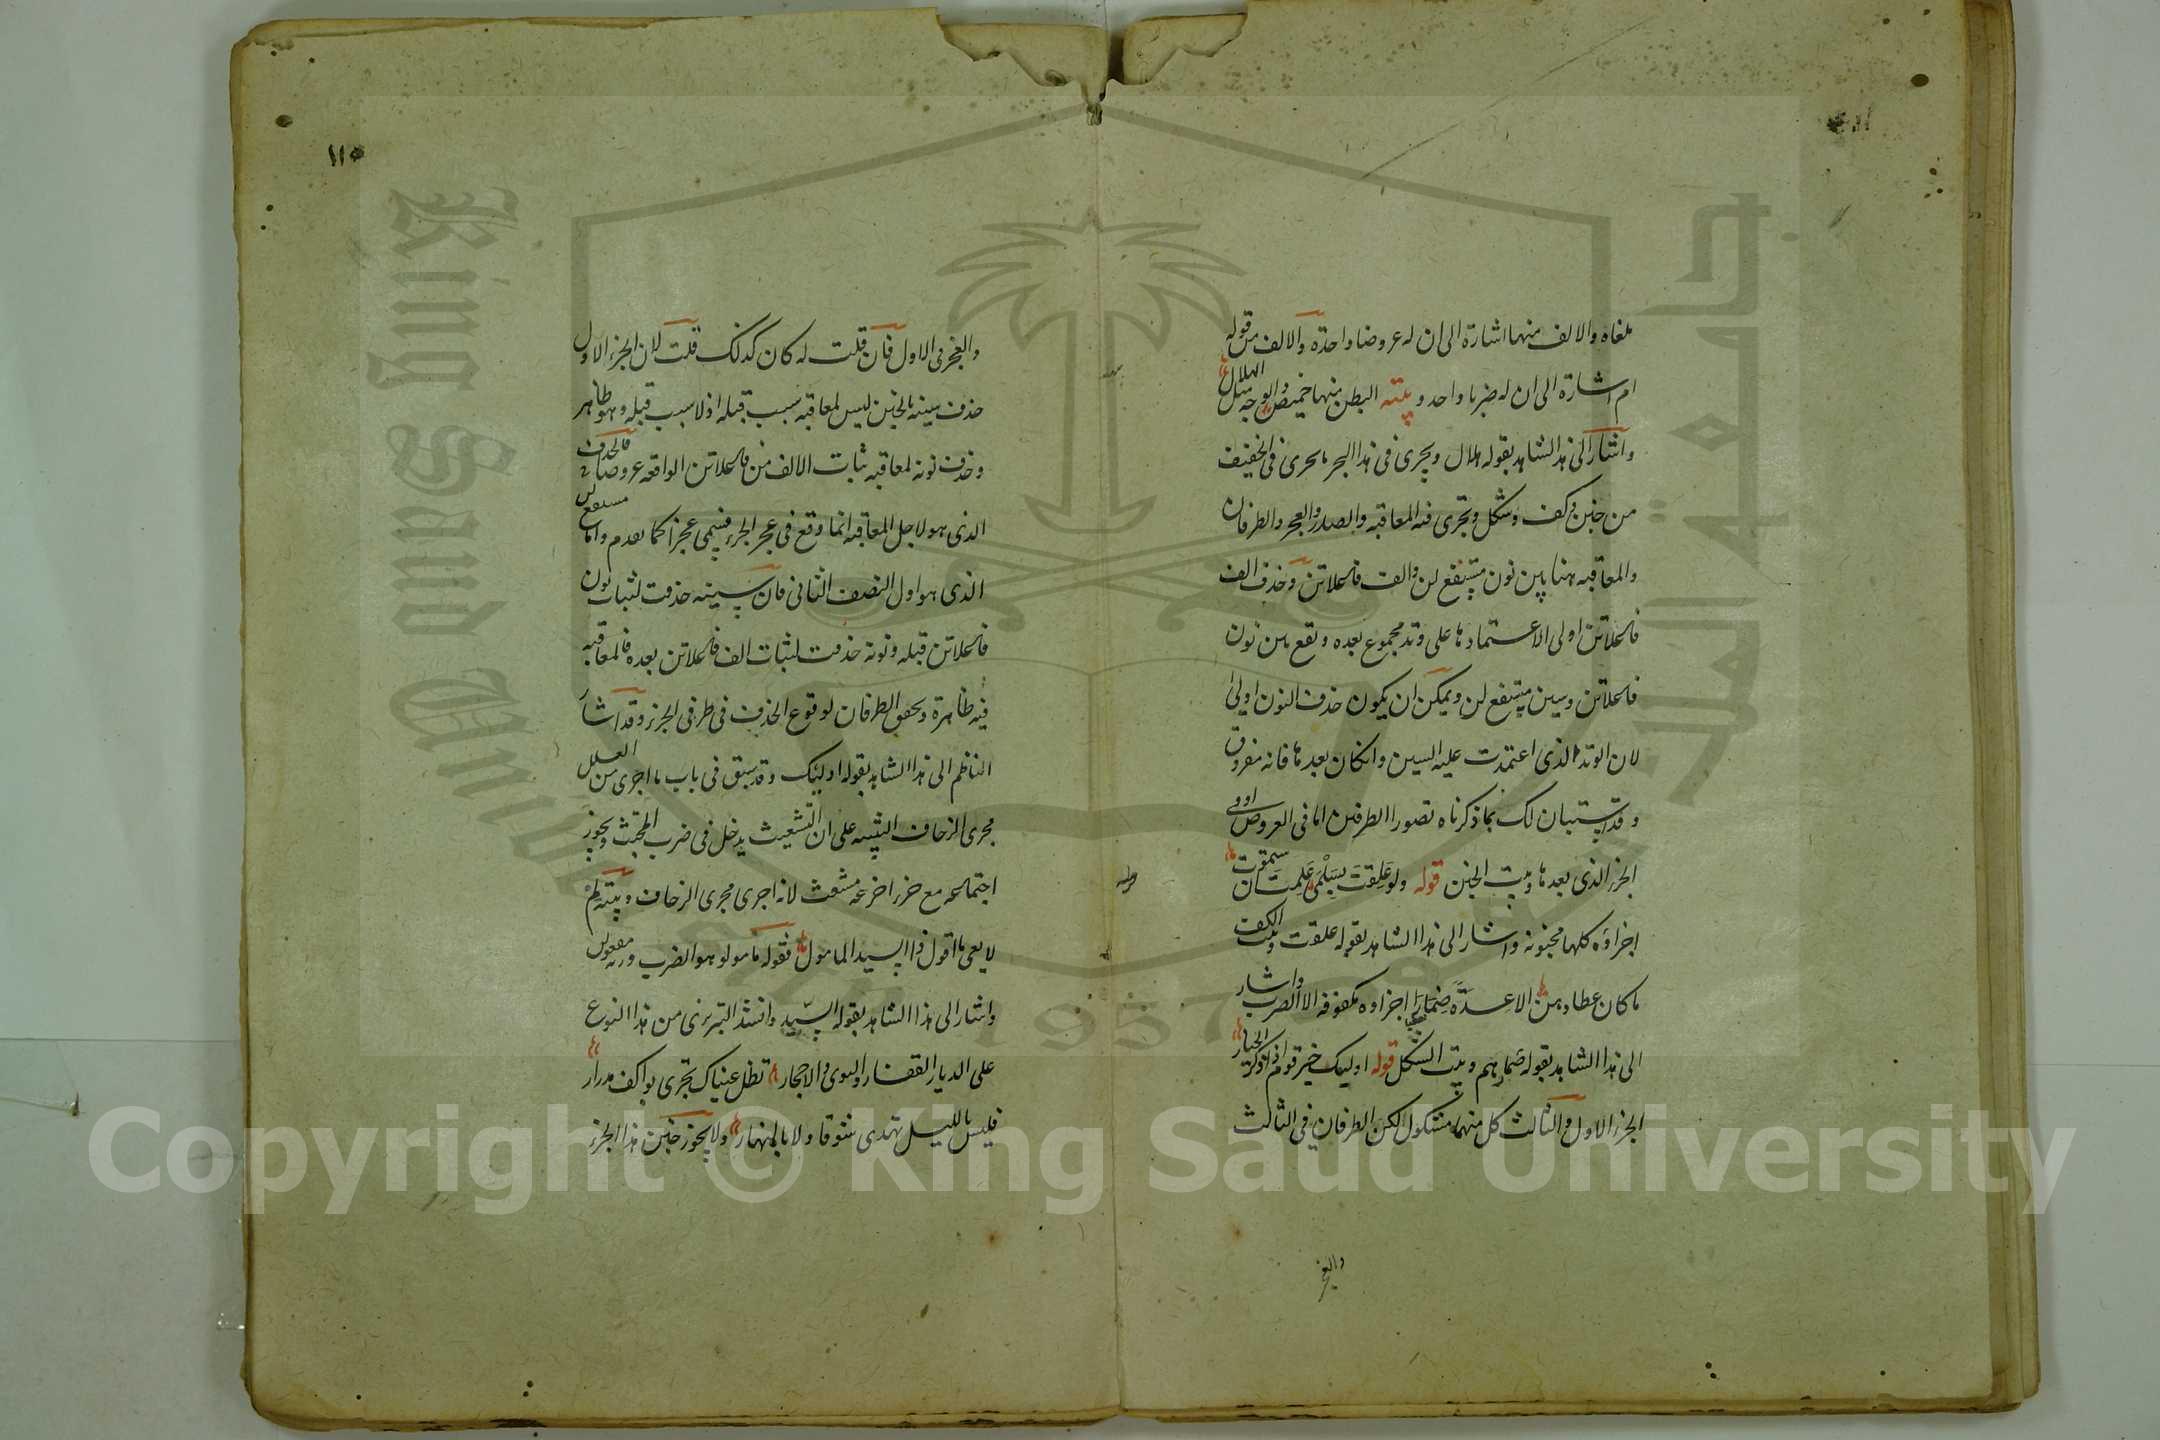 ملغاه والالف منها اشارة الى ان له عروضا واحدة والالف من قوله
ام اشارة الى ان له ضربا واحد وبيته البطن منها خميص والوجه مثل الهلال
واشار الى هذا الشاهد بقوله هلال ويجرى فى هذا البحر ما يجرى فى الخفيف
من خبن وكف وشكل وتجرى فيه المعاقبه والصدر والعجز والطرفان
والمعاقبه هنا بين نون مستفع لن والف فاعلاتن وحذف الف
فاعلاتن اولى الاعتمادها على وتد مجموع بعده وتقع بين نون
فاعلاتن وسين مستفع لن ويمكن ان يكون حذف النون اولى
لان الوتد الذى اعتمدت عليه السين وانكان بعدها فانه مفروق
وقد استبان لك بما ذكرناه تصور الطرفين اما فى العروض او فى
الجزء الذى بعدها وبيت الخبن قوله ولو علقت بسلمى علمت ان ستموت
اجزاؤه كلها مخبونة واشار الى هذا الشاهد بقوله علقت وبيت الكف
ما كان عطاوهن الا عدة ضمارا اجزاوه مكفوفه الا الضرب واشار
الى هذا الشاهد بقوله ضمارهم وبيت الشكل قوله اوليك خير قوم اذا ذكر الخيار
الجزء الاول والثالث كل منهما مشكول لكن الطرفان فى الثالث
والعجز
والعجز فى الاول فان قلت له كان كذلك قلت لان الجزء الاول
حذف سينه بالخبن ليس لمعاقبه سبب قبله اذ لا سبب قبله وهو ظاهر
وحذف نونه لمعاقبه ثبات الالف من فاعلاتن الواقعه عروضا فالحذف
الذى هو لاجل المعاقبه انما وقع فى عجز الجزء فيسمى عجزا كما تقدم واما مستفع لن
الذى هو اول النصف الثانى فان سينه حذفت لثبات نون
فاعلاتن قبله ونونه حذفت لثبات الف فاعلاتن بعده فالمعاقبه
فيه ظاهرة وتحقق الطرفان لوقوع الحذف فى طرفى الجزء وقد اشار
الناظم الى هذا الشاهد بقوله اوليك وقد سبق فى باب ما اجرى من العلل
مجرى الزحاف التنبيه على ان التشعيث يدخل فى ضرب المجتث ويجوز
اجتماعه مع ضرب اخر غير مشعث لانه اجرى مجرى الزحاف وبيته لم
لا يعى ما اقول ذا السيد المامول فقوله مامولو هو الضرب وزنه مفعولن
واشار الى هذا الشاهد بقوله السيد وانشد التبريزى من هذا النوع
على الديار القفار والنوى والاحجار تظل عيناك تجرى بواكف مدرار
فليس بالليل تهدى شوقا ولا بالنهار ولا يجوز خبن هذا الجزء
١١٥
جامعة الملك سعود
King Saud University
1957
Copyright © King Saud University